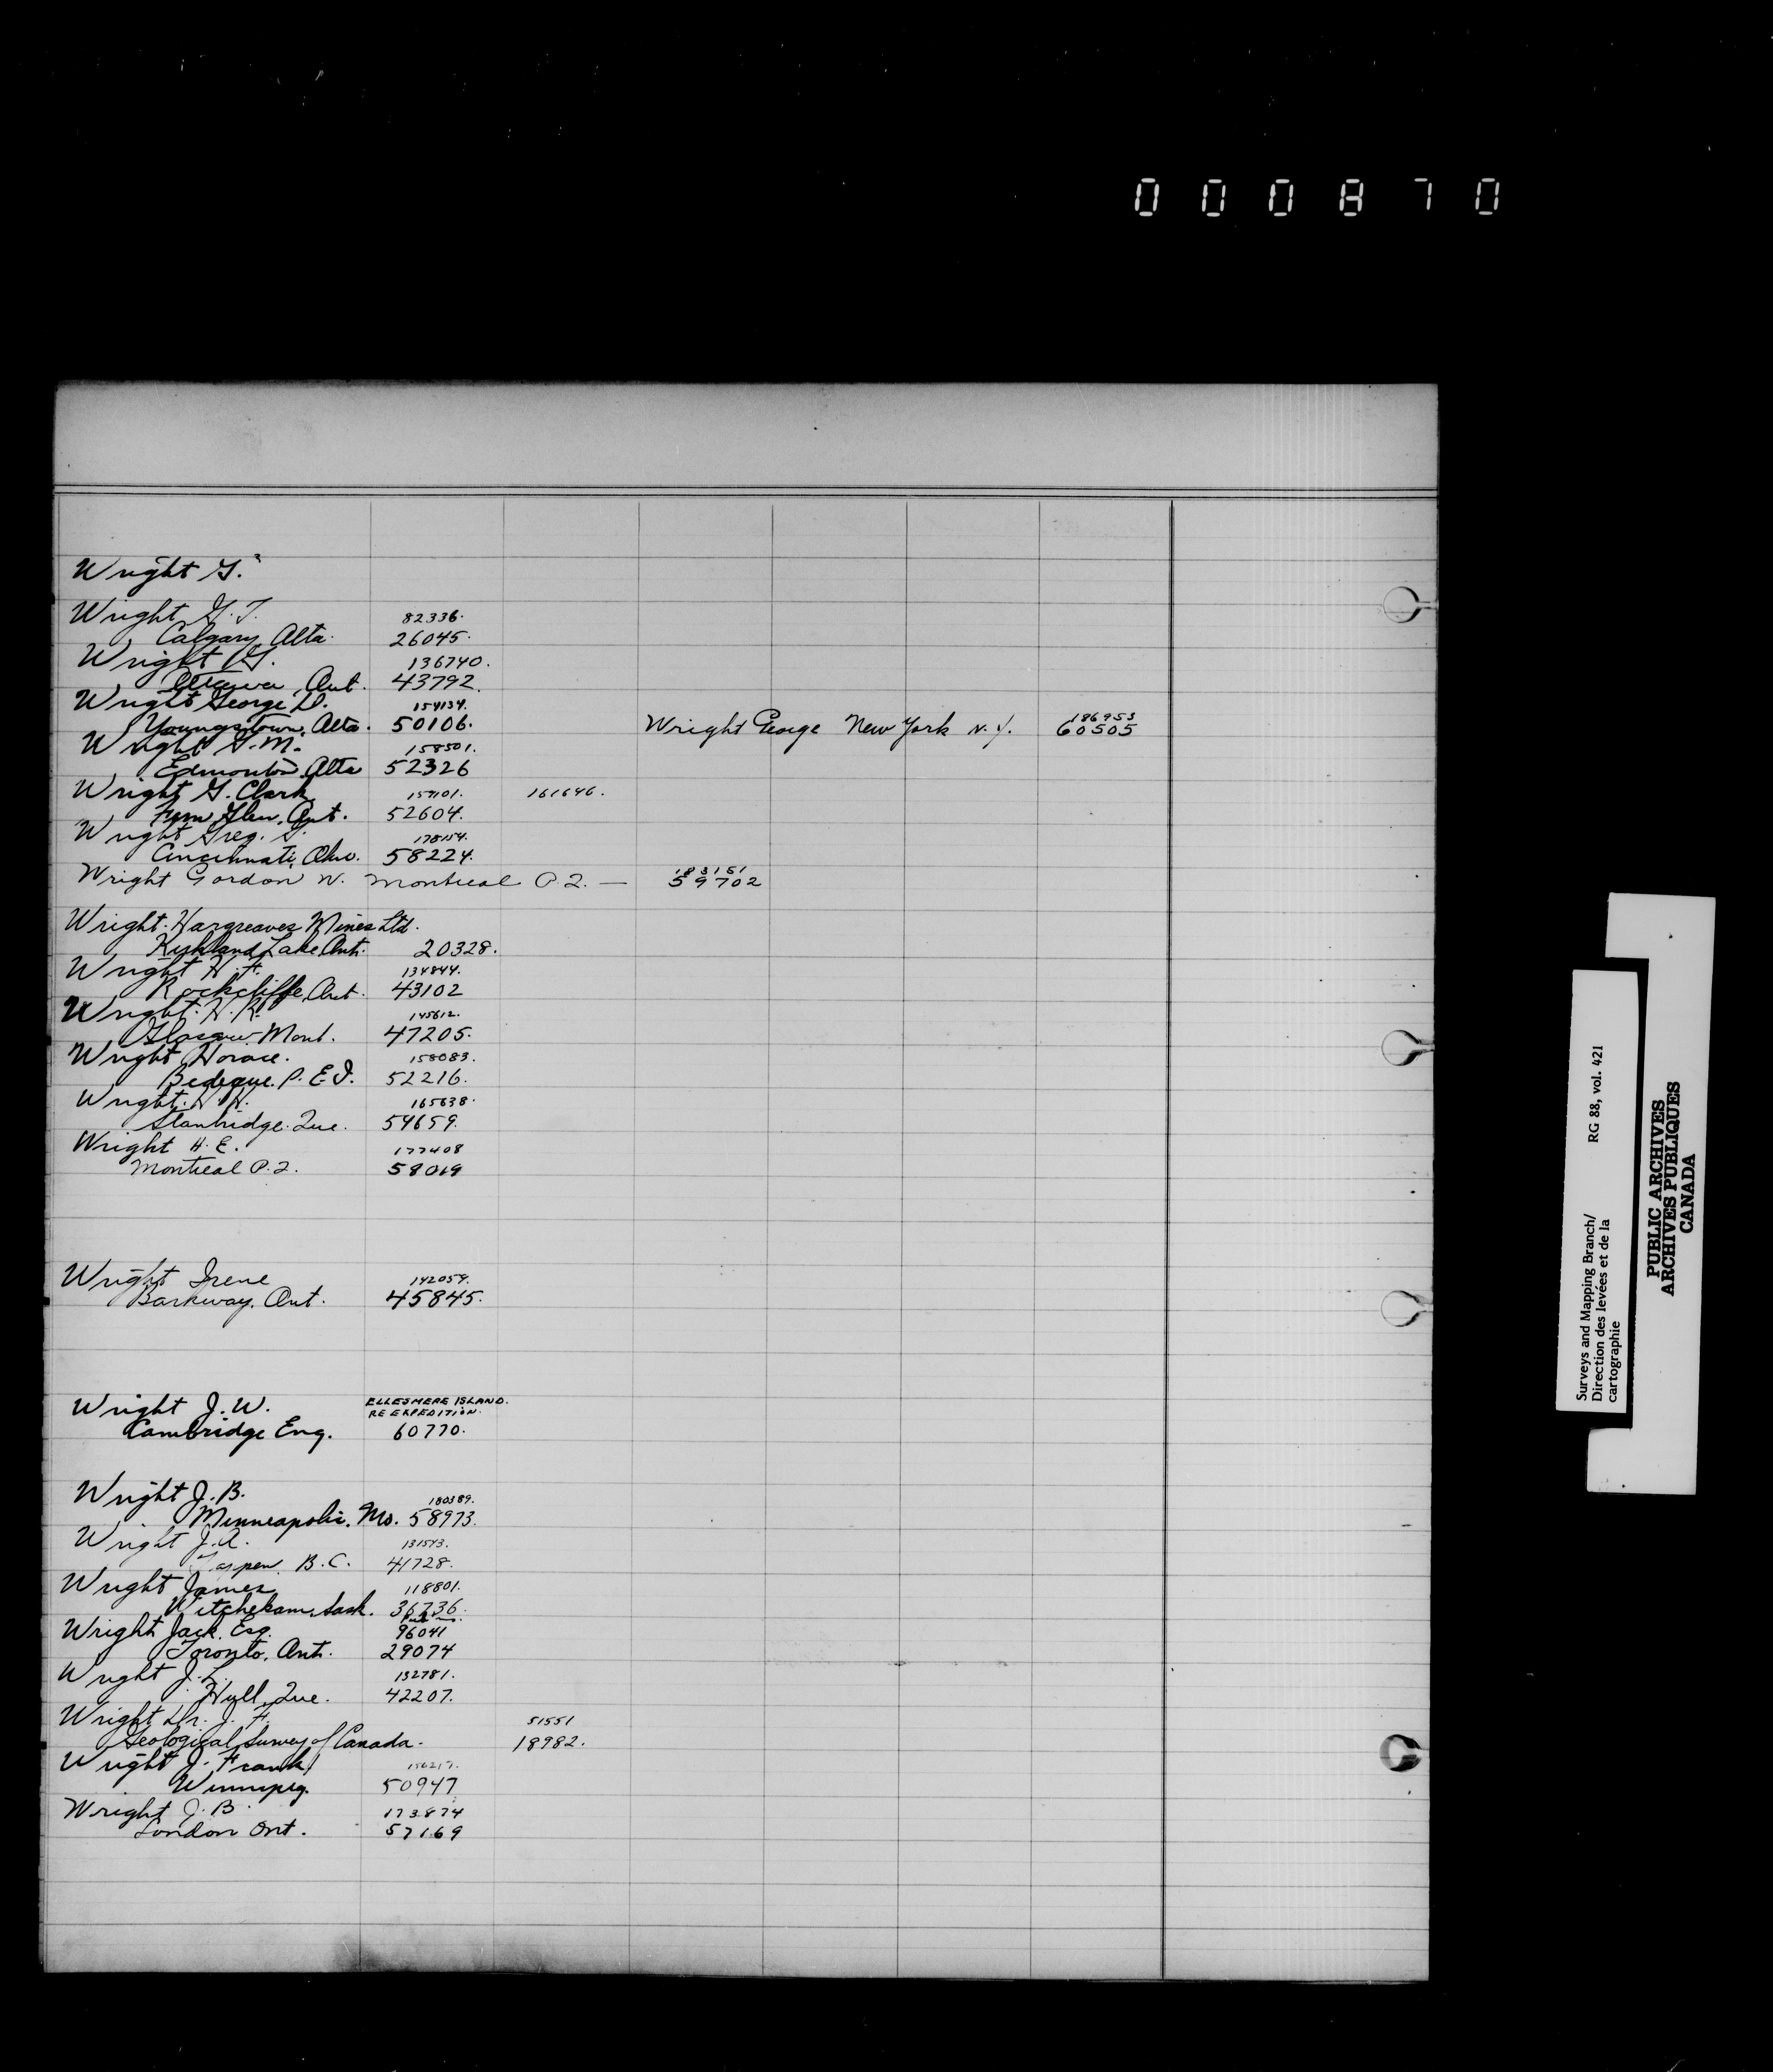 000870
Wright G.
Wright G. T. 82336.
Calgary Alta. 26045.
Wright G. 136740.
Ottawa, Ont. 43792.
Wright George D. 154134.
Youngstown, Alta. 50106.
Wright George New York N.Y. 186953
60505
Wright G. M. 158501.
Edmonton Alta 52326
Wright G. Clark 159101. 161646.
Fern Glen, Ont. 52604.
Wright Greg. G. 178154.
Cincinnati, Ohio. 58224.
Wright Gordon W. Montreal P.Q. — 183151
59702
Wright-Hargreaves Mines Ltd.
Kirkland Lake Ont. 20328.
Wright H. F. 134844.
Rockcliffe, Ont. 43102
Wright. H. R. 145612.
Glasgow Mont. 47205.
Wright Horace. 158083.
Bedeque. P. E. I. 52216.
Wright. H. W. 165638.
Stanbridge. Que. 54659.
Wright H. E. 177408
Montreal P.Q. 58069
Wright Irene 142059.
Barkway, Ont. 45845.
Wright J. W. ELLESMERE ISLAND.
RE EXPEDITION.
Cambridge Eng. 60770.
Wright J. B. 180389.
Minneapolis, Mo. 58973.
Wright J. A. 131543.
B. C. 41728.
Wright James 118801.
Witchekan, Sask. 36736.
Wright Jack. Esq. 96041
Toronto, Ont. 29074
Wright J. L. 132781.
Hull, Que. 42207.
Wright Dr. J. F. 51551
Geological Survey of Canada. 18982.
Wright J. Frank
Winnipeg. 50947
Wright J. B. 173874
London Ont. 57169
Surveys and Mapping Branch/ RG 88, vol. 421
Direction des levées et de la
cartographie
PUBLIC ARCHIVES
ARCHIVES PUBLIQUES
CANADA